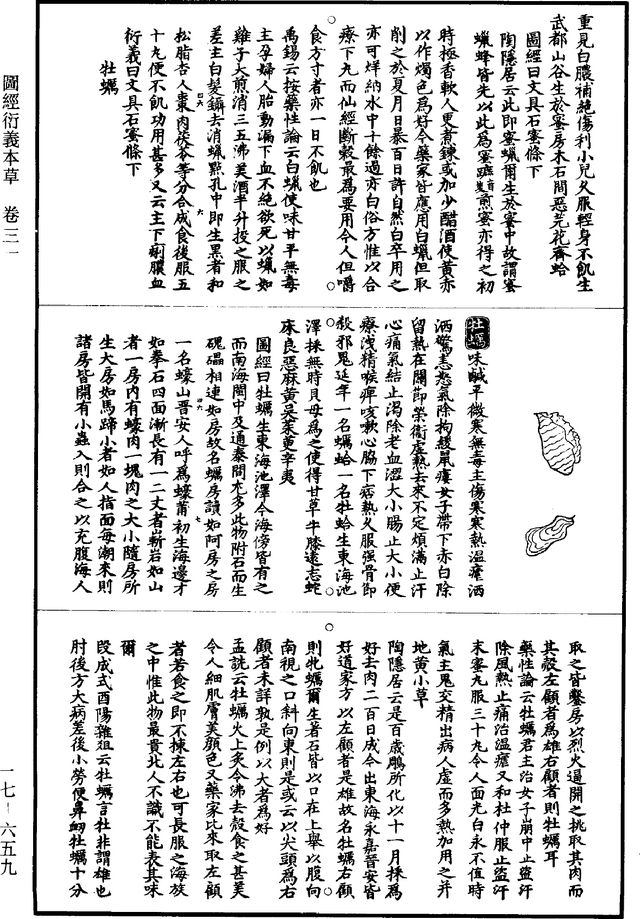 圖經衍義本草 卷三一
一七－六五九
重見白膿補絶傷利小兒久服輕身不飢生
武都山谷生於蜜房木石間惡芫花齊蛤
圖經曰文具石蜜條下
陶隱居云此即蜜蠟爾生於蜜中故謂蜜
蠟蜂皆先以此爲蜜蹠煎蜜亦得之初
時極香軟人更煮鍊或加少醋酒使黄赤
以作燭色爲好今藥家皆應用白蠟但取
削之於夏月日暴百日許自然白卒用之
亦可烊納水中十餘過亦白俗方惟以合
療下丸而仙經斷穀最爲要用今人但嚼
食方寸者亦一日不飢也
禹錫云按藥性論云白蠟使味甘平無毒
主孕婦人胎動漏下血不絶欲死以蠟如
雞子大煎消三五沸美酒半升投之服之
差主白髮鑷去消蠟點孔中即生黑者和
松脂杏人棗肉茯苓等分合成食後服五
十丸便不飢功用甚多又云主下痢膿血
衍義曰文具石蜜條下
牡蠣
牡蠣味鹹平微寒無毒主傷寒寒熱溫瘧洒
洒驚恚怒氣除拘緩鼠瘻女子帶下赤白除
留熱在關節榮衛虛熱去來不定煩滿止汗
心痛氣結止渴除老血澀大小腸止大小便
療洩精喉痹咳嗽心脇下痞熱久服强骨節
殺邪鬼延年一名蠣蛤一名牡蛤生東海池
澤採無時貝母爲之使得甘草牛膝遠志蛇
床良惡麻黄吴茱萸辛夷
圖經曰牡蠣生東海池澤今海傍皆有之
而南海閩中及通泰間尤多此物附石而生
磈礧相連如房故名蠣房讀如阿房之房
一名蠔山晉安人呼爲蠔莆初生海邊才
如拳石四面漸長有一二丈者嶄岩如山
者一房内有蠔肉一塊肉之大小隨房所
生大房如馬蹄小者如人指面每潮來則
諸房皆開有小蟲入則合之以充腹海人
取之皆鑿房以烈火逼開之挑取其肉而
其殼左顧者爲雄右顧者則牡蠣耳
藥性論云牡蠣君主治女子崩中止盜汗
除風熱止痛治溫瘧又和杜仲服止盜汗
末蜜丸服三十丸令人面光白永不值時
氣主鬼交精出病人虛而多熱加用之并
地黄小草
陶隱居云是百歲鵰所化以十一月採爲
好去肉二百日成今出東海永嘉晉安皆
好道家方以左顧者是雄故名牡蠣右顧
則牝蠣爾生著石皆以口在上舉以腹向
南視之口斜向東則是或云以尖頭爲右
顧者未詳孰是例以大者爲好
孟詵云牡蠣火上炙令沸去殼食之甚美
令人細肌膚美顔色又藥家比來取左顧
者若食之即不揀左右也可長服之海族
之中惟此物最貴北人不識不能表其味
爾
段成式酉陽雜俎云牡蠣言牡非謂雄也
肘後方大病差後小勞便鼻衂牡蠣十分